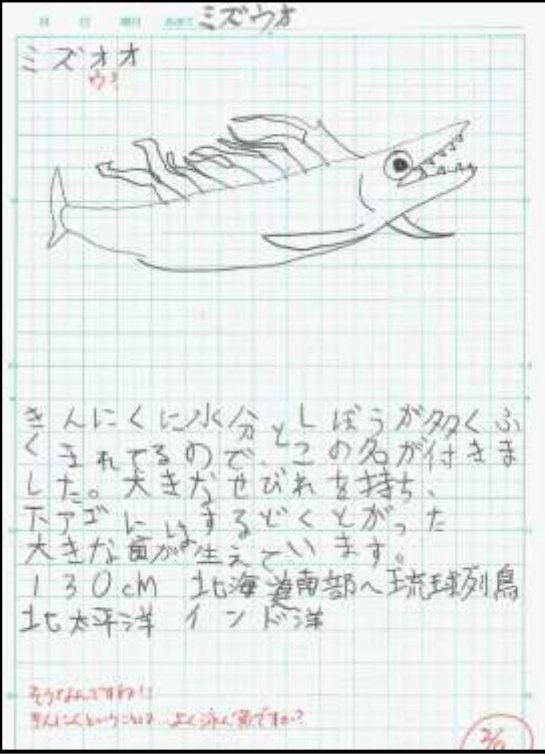 ミズウオ
ミズオオ
ウオ
きんにくに水分としぼうが多くふ
くまれてるので、この名が付きま
した。大きなせびれを持ち、
下アゴにはするどくとがった
大きな歯が生えています。
130cM 北海道南部へ琉球列島
北太平洋 インド洋
そうなんですね!!
きんにくということは、よく泳ぐ魚ですか?